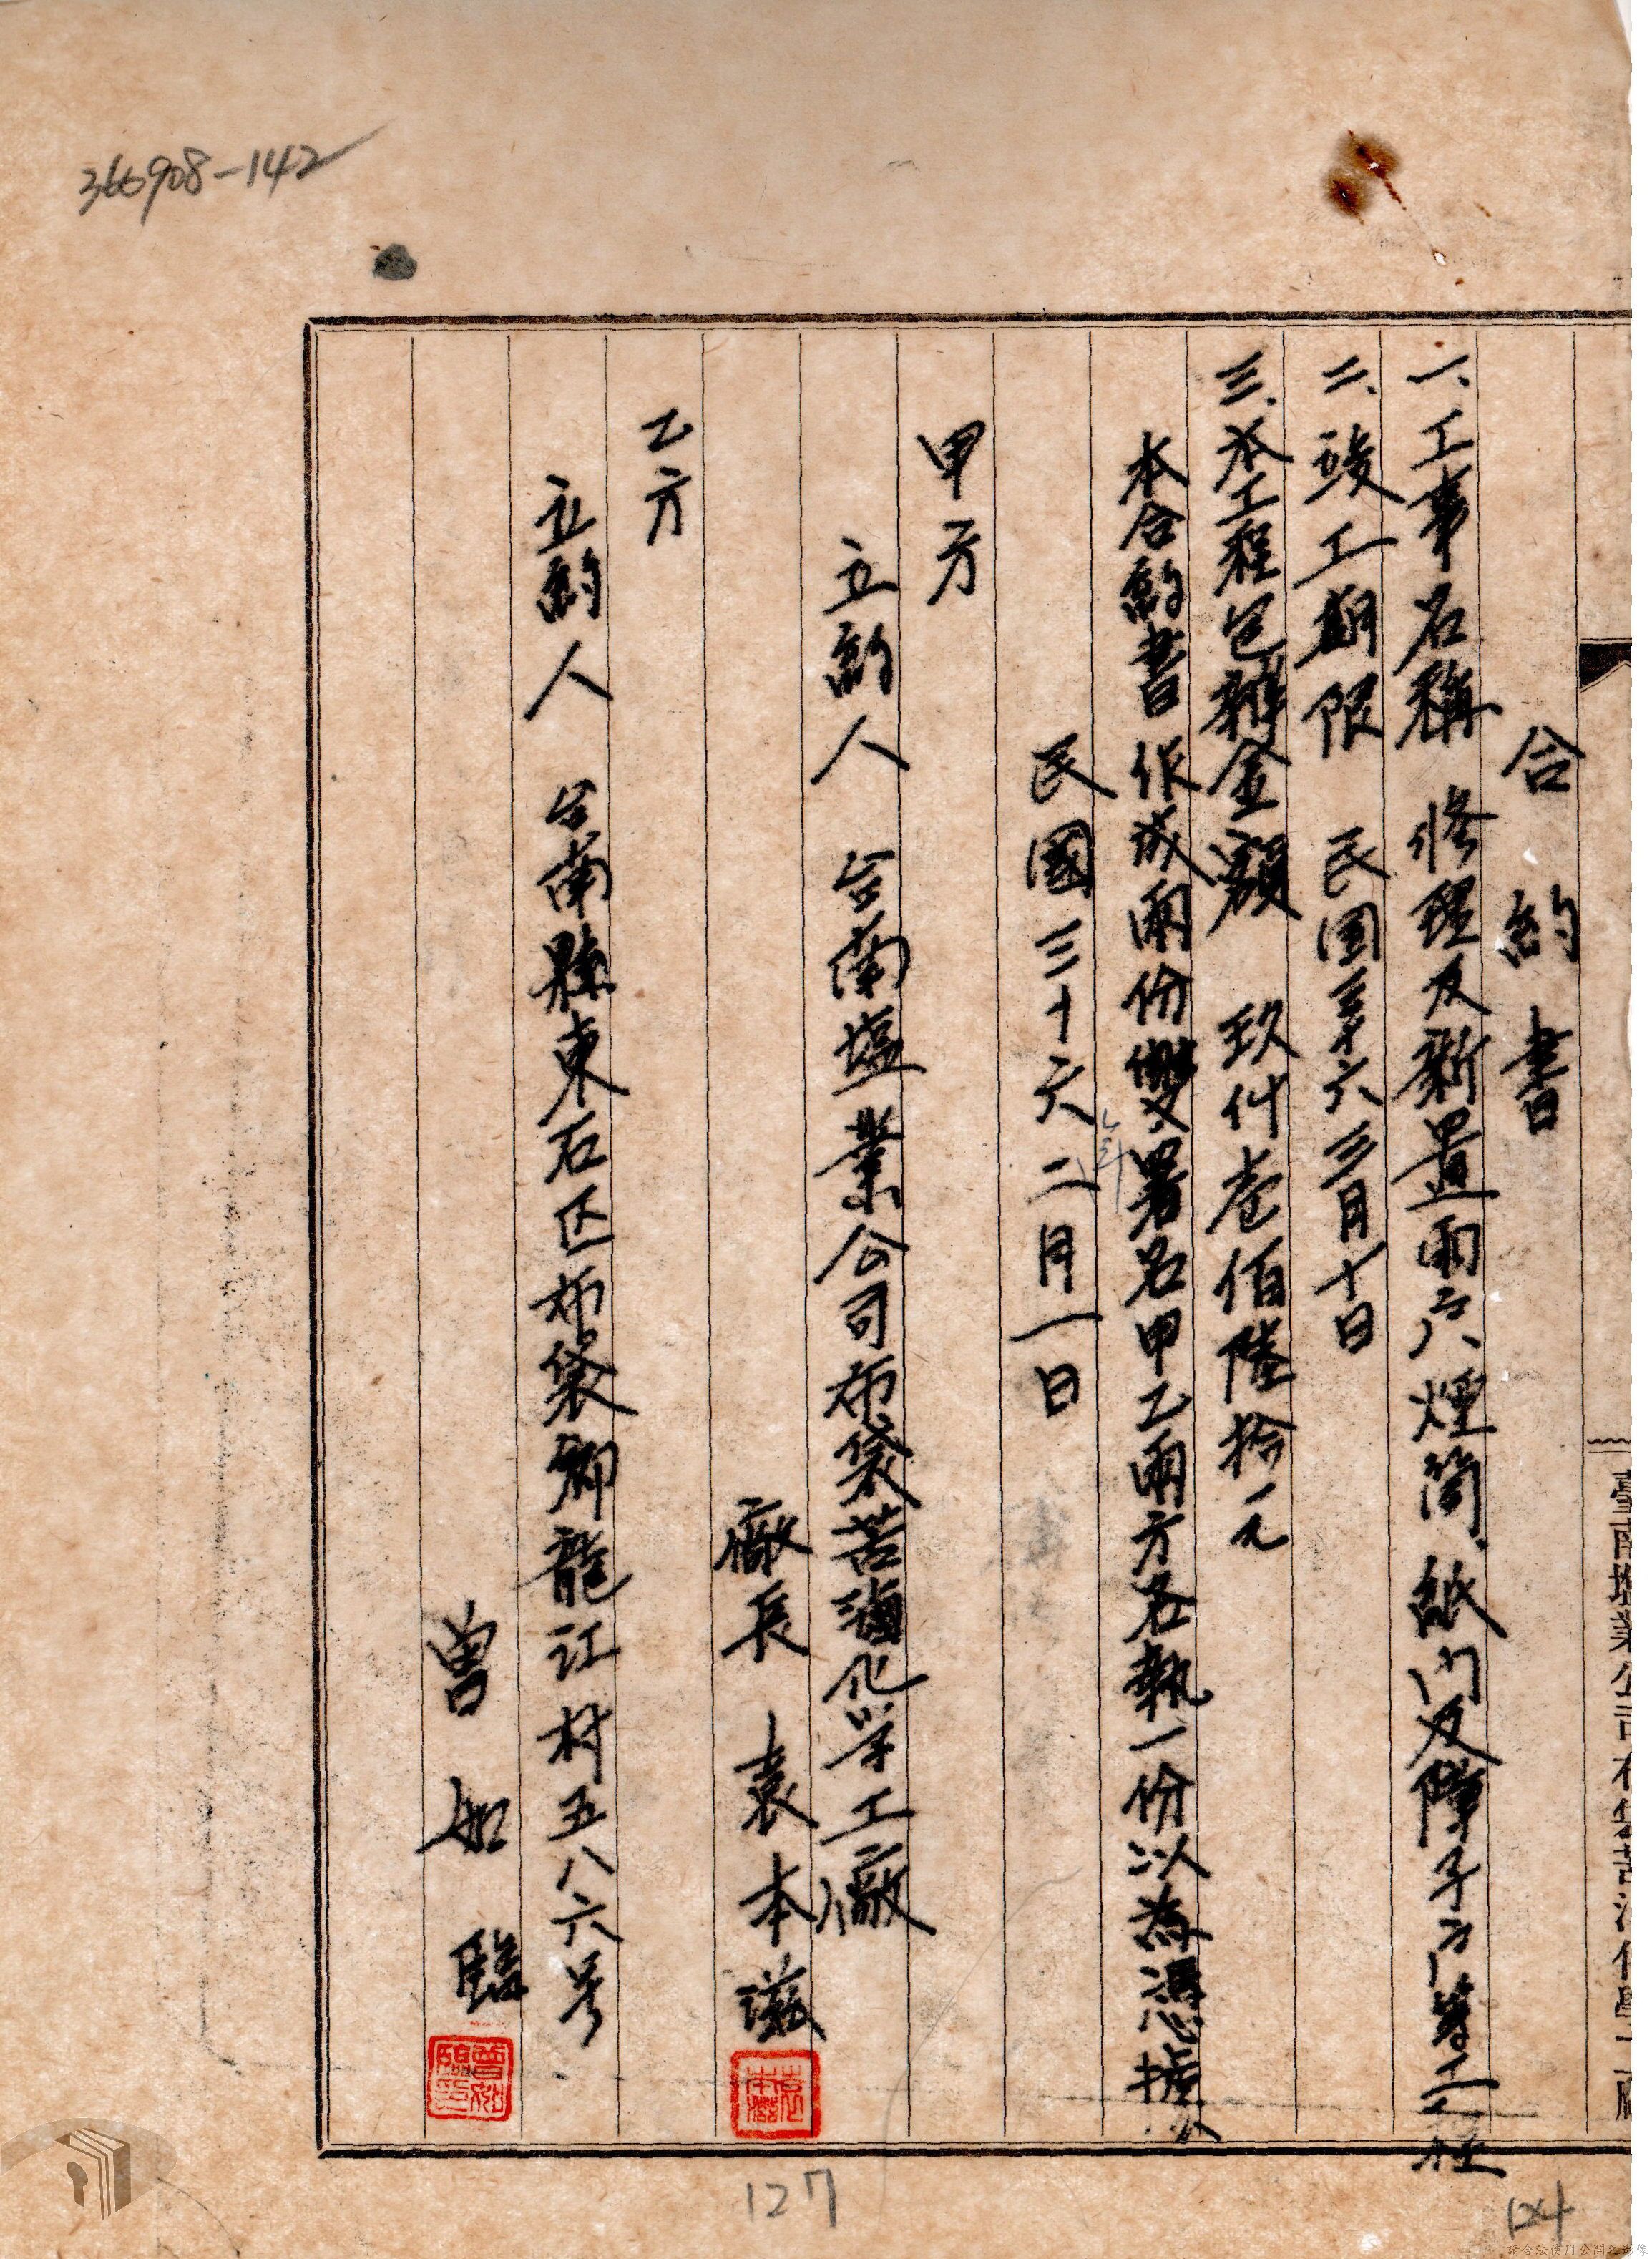 366908-142
合約書
一、工事名稱 修理及新置雨戶、煙筒、紙門及障子戶等工程
二、竣工期限 民國三十六三月十日
三、本工程包辦金額 玖仟壱佰陸拾元
本合約書作成兩份雙署名甲乙兩方各執一份以為憑據
民國三十六年二月一日
甲方
立約人 台南塩業公司布袋苦滷化学工廠
廠長 袁本滋
乙方
立約人 台南縣東石区布袋鄉龍江村五八六号
曾如臨
袁本滋
曾如臨印
臺南塩業公司布袋苦滷化學工廠
127
124
請合法使用公開之影像